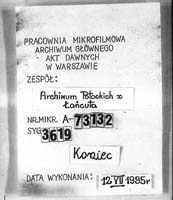 PRACOWNIA MIKROFILMOWA
ARCHIWUM GŁÓWNEGO
AKT DAWNYCH
W WARSZAWIE
ZESPÓŁ:
Archiwum Potockich z
Łańcuta
NR.MIKR. A-73132
SYG. 3619
Koniec
DATA WYKONANIA: 12 VII 1995r